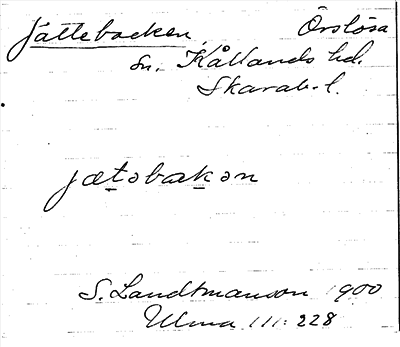 Jättebacken, Örslösa
sn. Kållands hd.
Skarab. l.
jætəbakən
S. Landtmanson 1900
Ulma 111: 228